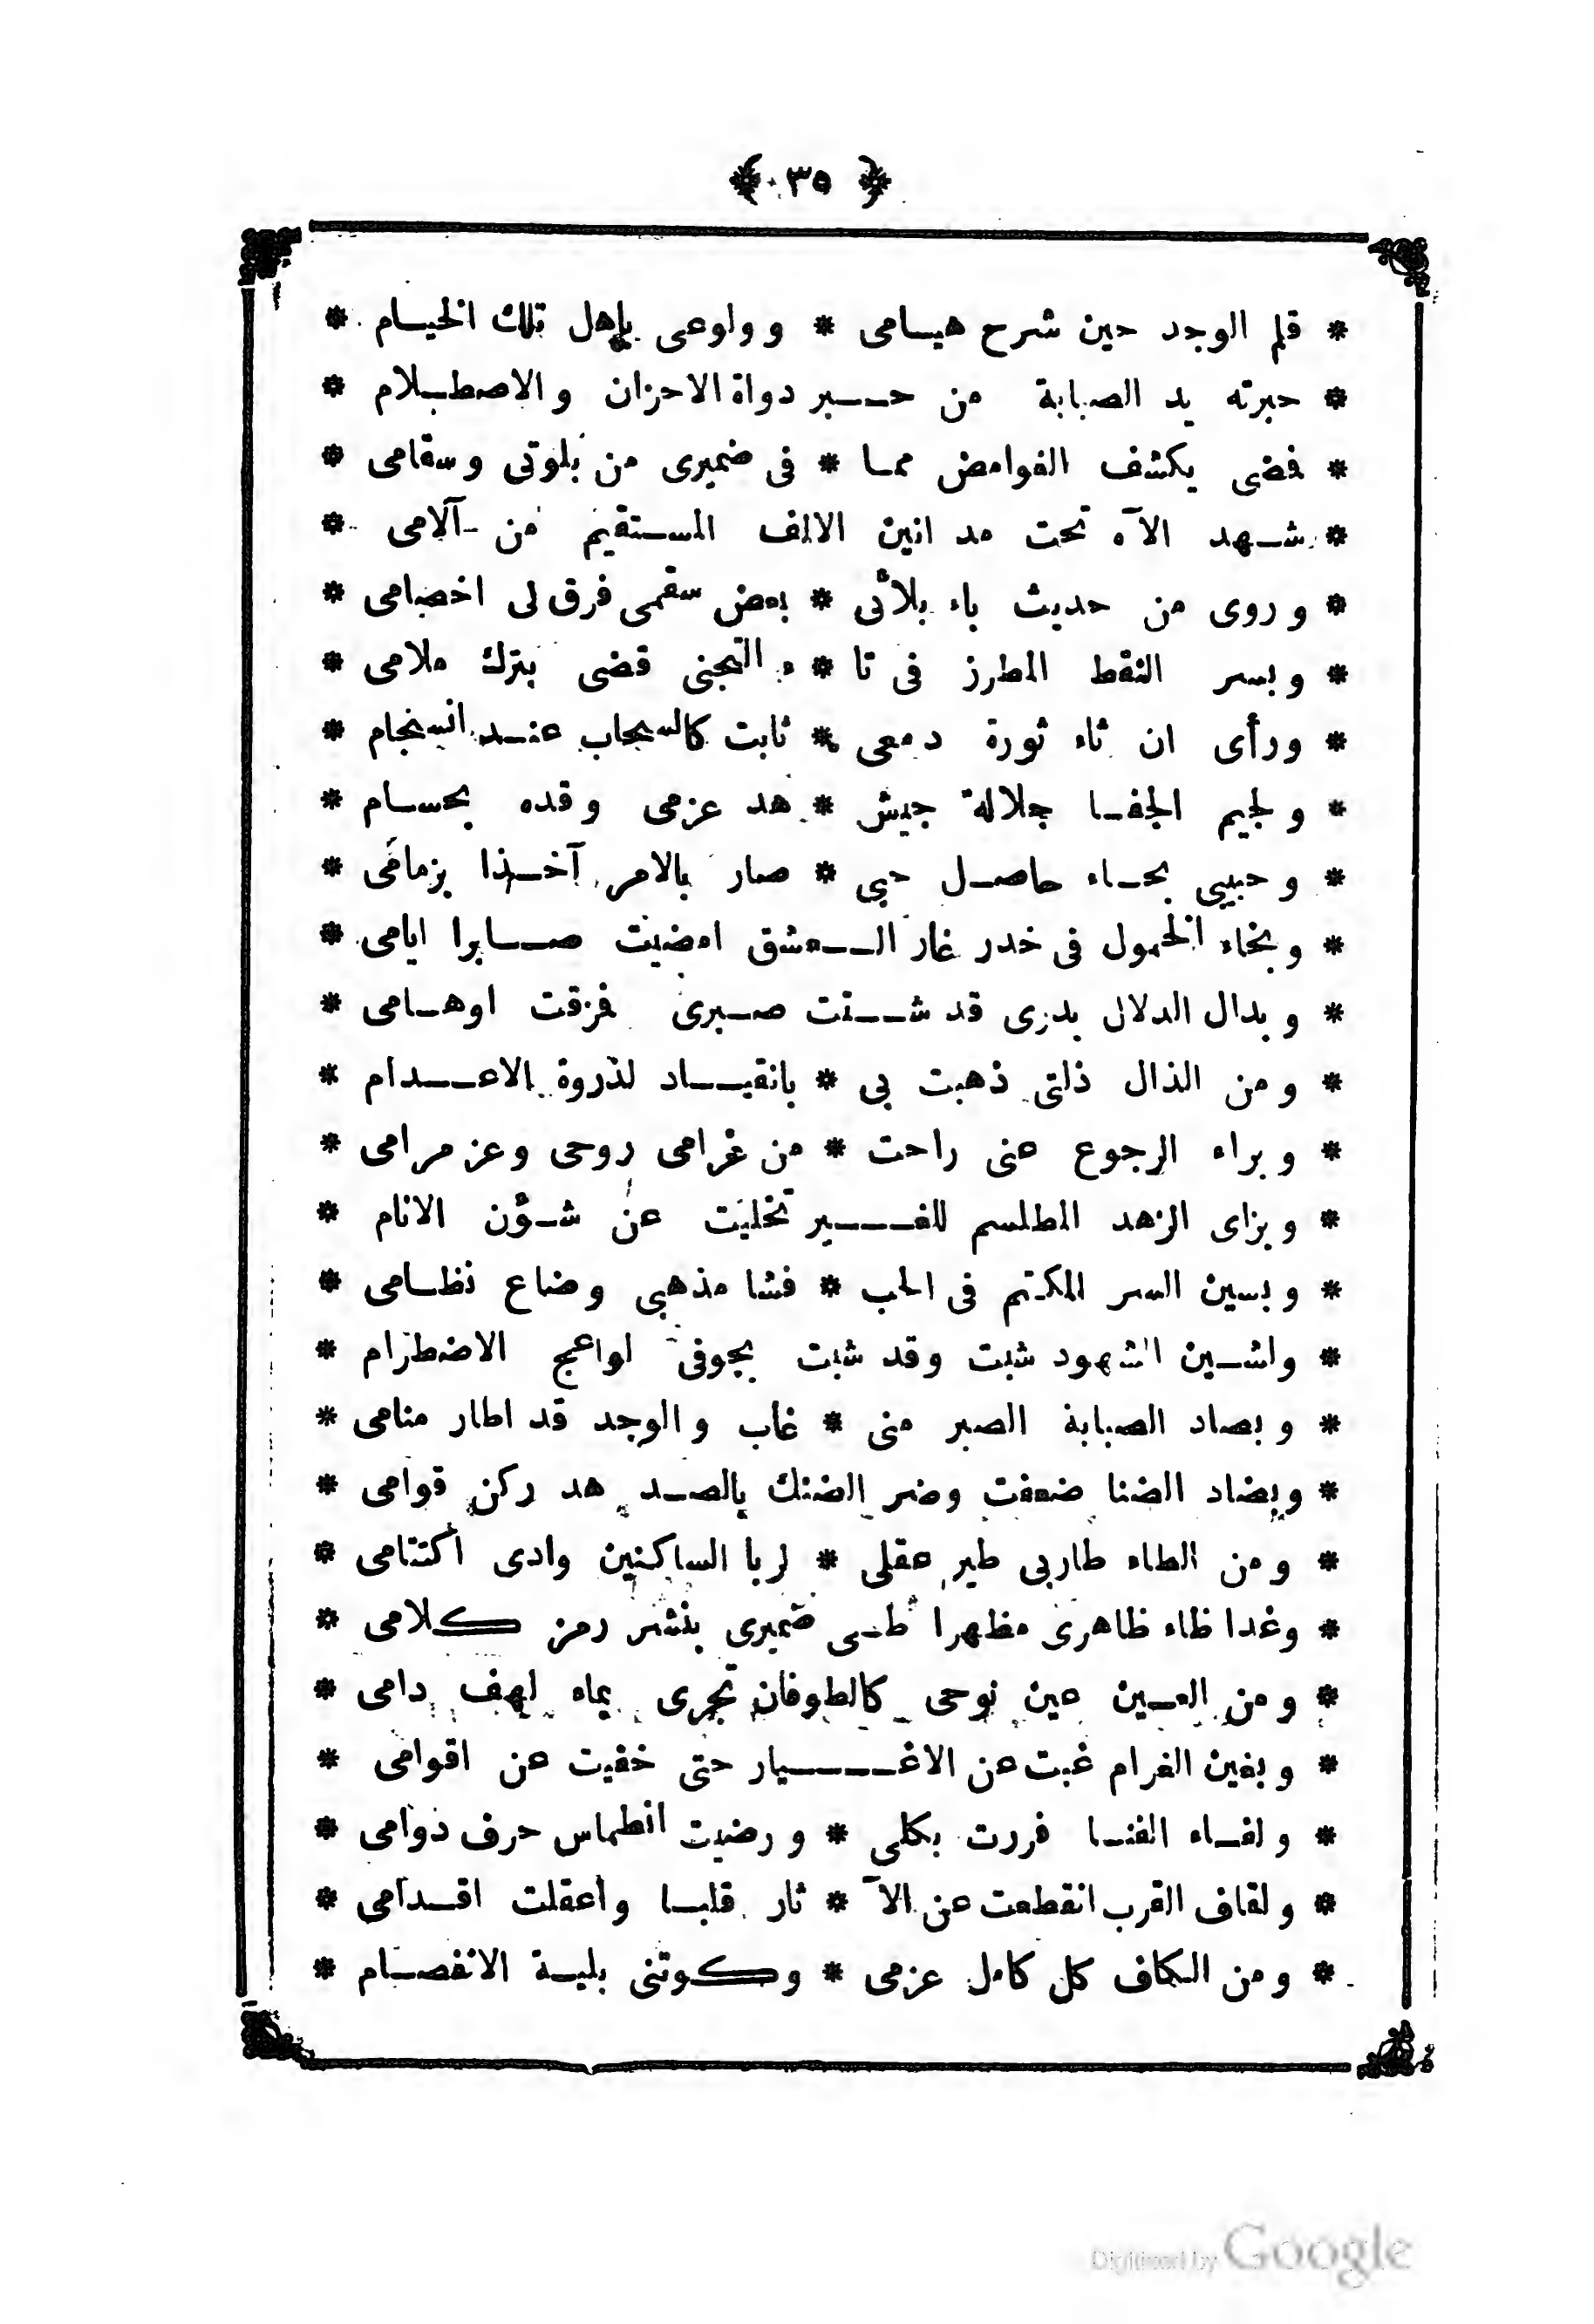 ﴿ ٣٥ ﴾
* قلم الوجد حين شرح هيامى * وولوعى باهل تلك الخيام *
* حبرته يد الصبابة من حبر دواة الاحزان والاصطلام *
* فضى يكشف الغوامض مما * فى ضميرى من بلوتى وسقامى *
* شهد الآه تحت مد انين الالف المستقيم من آلامى *
* وروى من حديث باء بلائى * بعض سقمى فرق لى اخصامى *
* وبسر النقط المطرز فى تا * ء التجنى قضى بترك ملامى *
* ورأى ان ثاء ثورة دمعى * ثابت كالسحاب عند انسجام *
* ولجيم الجفا جلالة جيش * هد عزمى وقده بحسام *
* وحبيبى بحاء حاصل حبى * صار بالامر آخذا بزمامى *
* وبخاء الخمول فى خدر غار العشق امضيت صابرا ايامى *
* وبدال الدلال بدرى قد شتت صبرى فمزقت اوهامى *
* ومن الذال ذلتى ذهبت بى * بانقياد لذروة الاعدام *
* وبراء الرجوع عنى راحت * من غرامى روحى وعز مرامى *
* وبزاى الزهد المطلسم للغير تخليت عن شؤن الانام *
* وبسين السر المكتم فى الحب * فشا مذهبى وضاع نظامى *
* ولشين الشهود شبت وقد شبت بجوفى لواعج الاضطرام *
* وبصاد الصبابة الصبر منى * غاب والوجد قد اطار منامى *
* وبضاد الضنا ضعفت وضر الضنك بالصد هد ركن قوامى *
* ومن الطاء طاربى طير عقلى * لربا الساكنين وادى اكتتامى *
* وغدا ظاء ظاهرى مظهرا طى ضميرى بنشر رمز كلامى *
* ومن العين عين نوحى كالطوفان تجرى بماء لهف دامى *
* وبغين الغرام غبت عن الاغيار حتى خفيت عن اقوامى *
* ولفاء الفنا فررت بكلى * ورضيت انطماس حرف دوامى *
* ولقاف القرب انقطعت عن الآ * ثار قلبا واعقلت اقدامى *
* ومن الكاف كل كامل عزمى * وكوتنى بلية الانفصام *
Digitized by Google